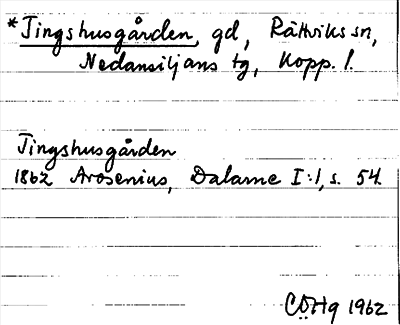 *Tingshusgården, gd, Rättviks sn,
Nedansiljans tg, Kopp. l.
Tingshusgården
1862 Arosenius, Dalarne I:1, s. 54
CÖHg 1962